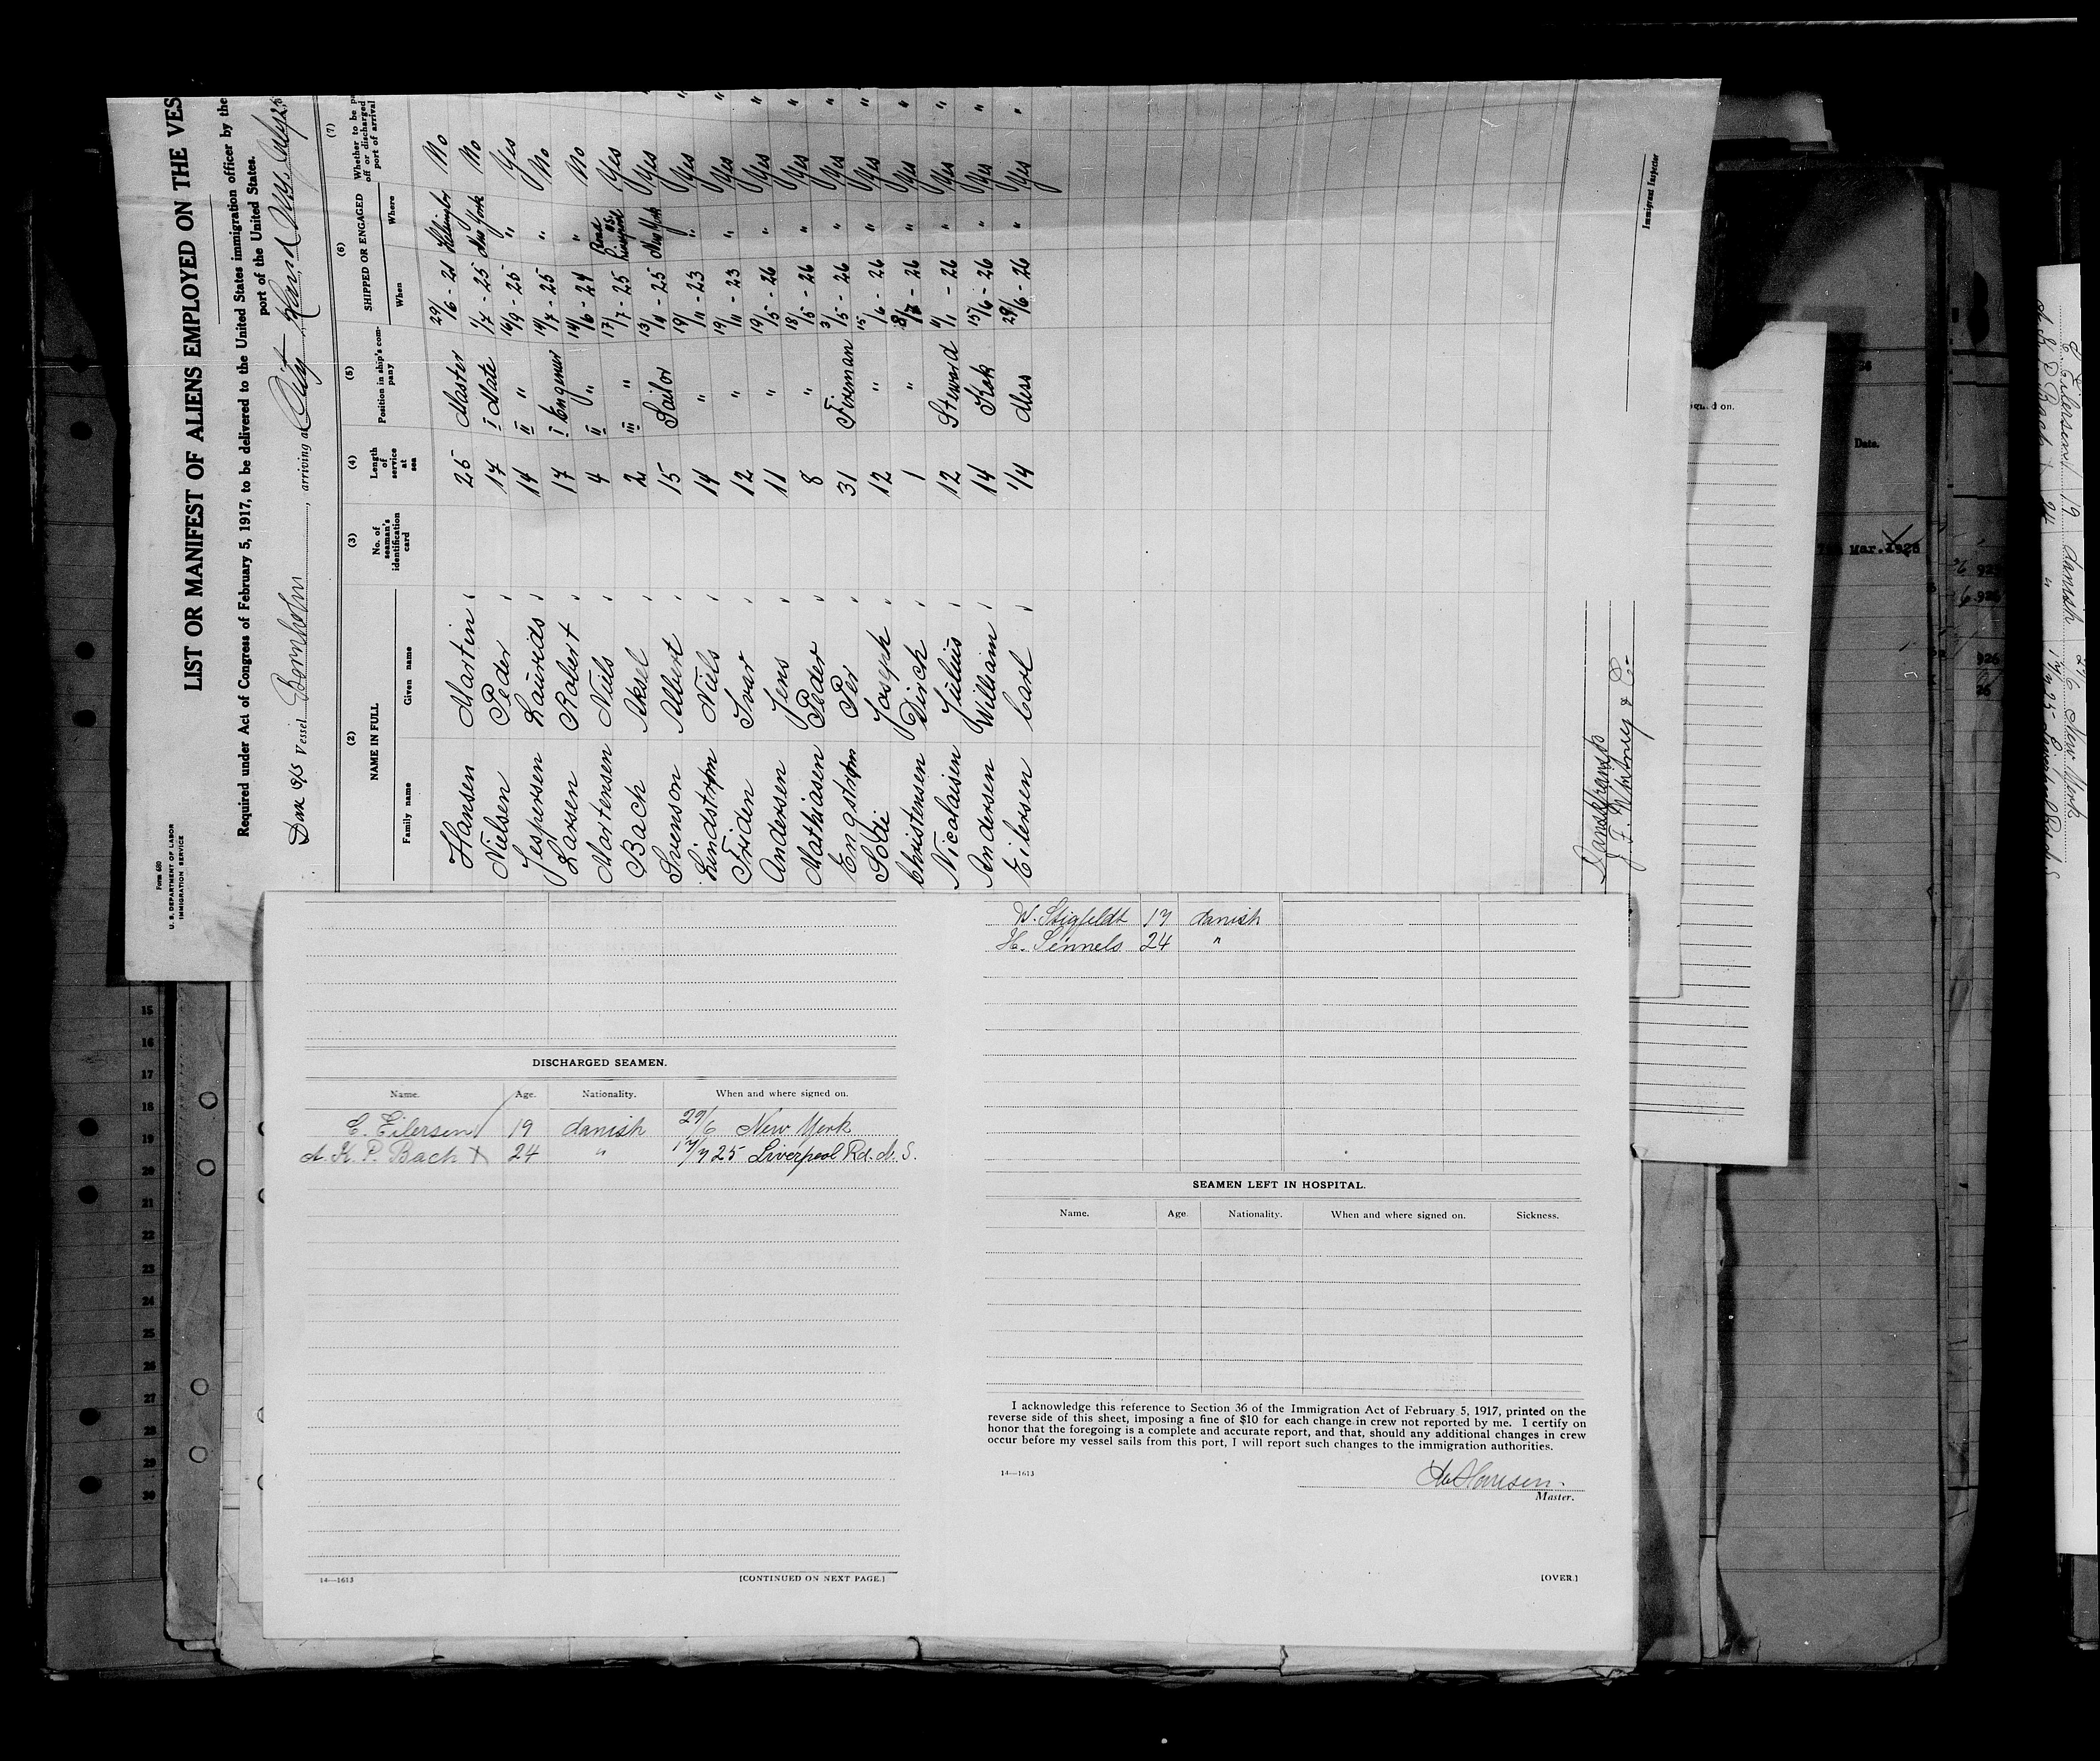 Form 680
U. S. DEPARTMENT OF LABOR
IMMIGRATION SERVICE
LIST OR MANIFEST OF ALIENS EMPLOYED ON THE VES
Required under Act of Congress of February 5, 1917, to be delivered to the United States immigration officer by the
port of the United States.
Dan S/S Vessel Bornholm, arriving at City
(2) (3) (4) (5) (6) (7)
NAME IN FULL
Family name Given name
No. of seaman's identification card
Length of service at sea
Position in ship's company
SHIPPED OR ENGAGED
When Where
Whether to be pa
off or discharged
port of arrival
Hansen Martin 25 Master 29/6 - 21 Helsingör No
Nielsen Peder 17 I Mate 1/7 - 25 New York No
Jespersen Laurids 14 II " 16/9 - 25 " Yes
Larsen Robert 17 I Engineer 14/7 - 25 " No
Martensen Niels 4 II " 14/6 - 24 " No
Bach Aksel 2 III " 17/7 - 25 Liverpool Yes
Svenson Albert 15 Sailor 13/4 - 25 New York Yes "
Lindstrøm Niels 14 " 19/11 - 23 " Yes "
Friden Ivar 12 " 19/11 - 23 " Yes "
Andersen Jens 11 " 19/5 - 26 " Yes "
Mathiasen Peder 8 " 18/5 - 26 " Yes "
Engstrøm Per 31 Fireman 3/5 - 26 " Yes "
Soldi Joseph 12 " 15/6 - 26 " Yes "
Christensen Dirch 1 " - 26 " Yes "
Nicolaisen Julius 12 Steward 4/1 - 26 " Yes "
Andersen William 14 Kok 15/6 - 26 " Yes "
Eilersen Carl 1/4 Mess 29/6 - 26 " Yes "
Immigrant Inspector
Dansk
J. F. Whitney & Co.
DISCHARGED SEAMEN.
Name. Age. Nationality. When and where signed on.
C. Eilersen 19 danish 29/6 New York
A. K. P. Bach X 24 " 17/7 25 Liverpool Rd. N. S.
14—1613 [CONTINUED ON NEXT PAGE.]
W. Stigfeldt 17 danish
H. Sennels 24 "
SEAMEN LEFT IN HOSPITAL.
Name. Age. Nationality. When and where signed on. Sickness.
I acknowledge this reference to Section 36 of the Immigration Act of February 5, 1917, printed on the
reverse side of this sheet, imposing a fine of $10 for each change in crew not reported by me. I certify on
honor that the foregoing is a complete and accurate report, and that, should any additional changes in crew
occur before my vessel sails from this port, I will report such changes to the immigration authorities.
14—1613
Hansen
Master.
[OVER.]
15
16
17
18
19
20
21
22
23
24
25
26
27
28
29
30
Date.
Mar. 1926